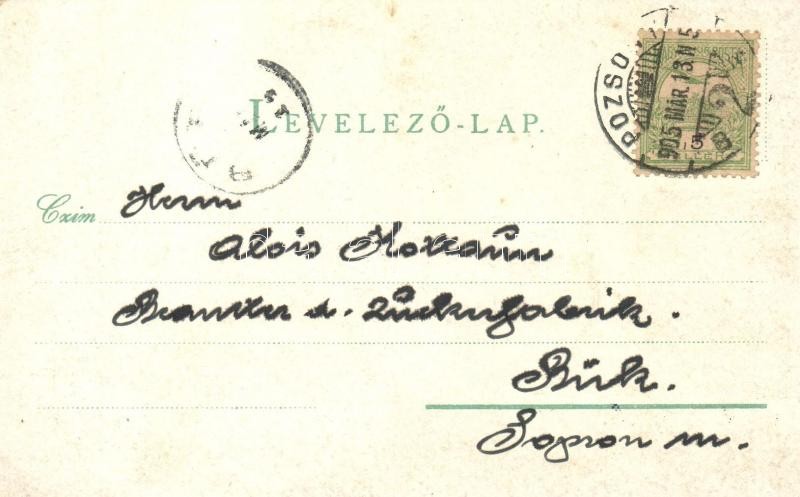 LEVELEZŐ-LAP.
POZSO
905 MÁR. 13. N 5
Czim Herrn
Alois
Beamter d. Zuckerfabrik.
Bük.
Sopron m.